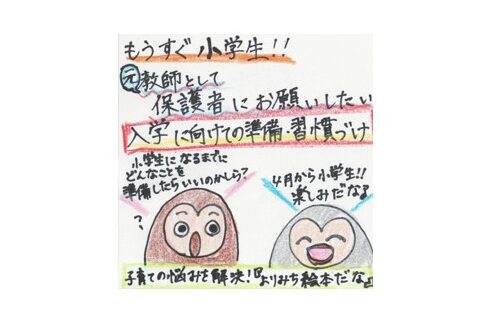 もうすぐ小学生!!
元教師として
保護者にお願いしたい
入学に向けての準備・習慣づけ
小学生になるまでに
どんなことを
準備したらいいのかしら?
?
4月から小学生!!
楽しみだなぁ
子育ての悩みを解決!『よりみち絵本だな』